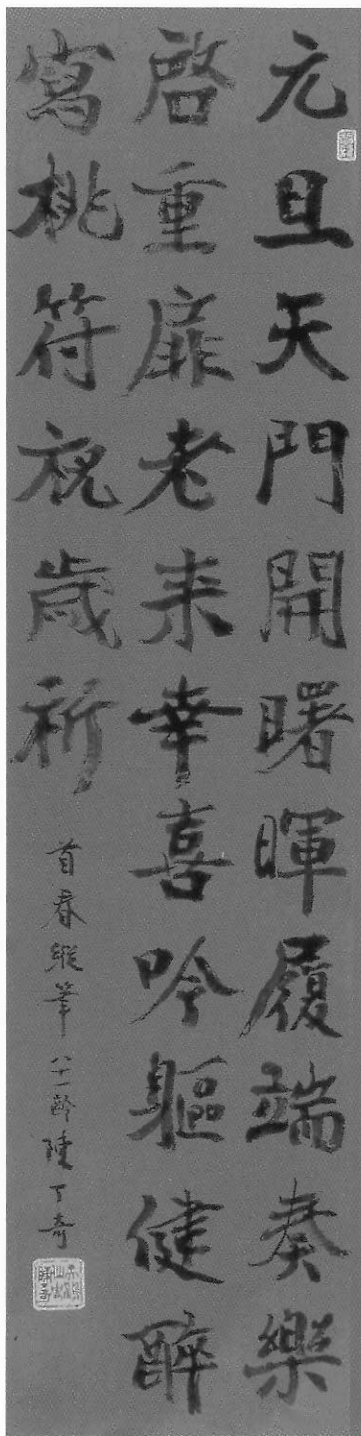 元旦天門開曙暉履端奏樂
啓重扉老来幸喜吟軀健醉
寫桃符祝歳祈
首春縱筆 八十一齡 陳丁奇